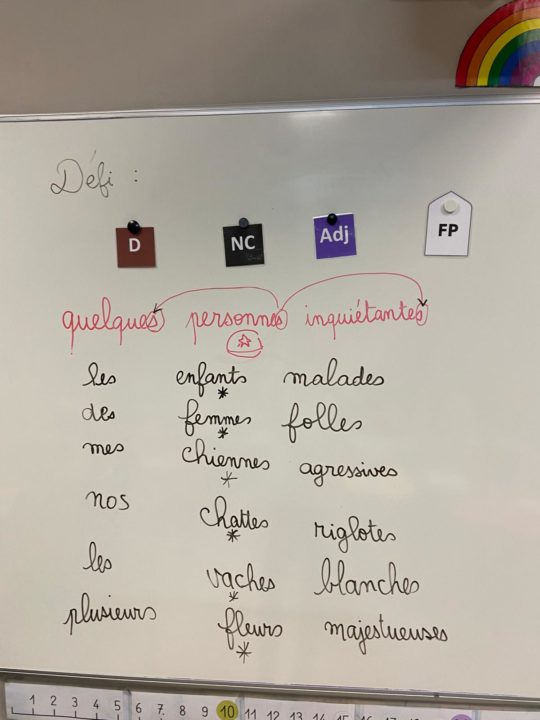 Défi :
D NC Adj FP
quelques personnes inquiétantes
les enfants malades
des femmes folles
mes chiennes agressives
nos chattes riglotes
les vaches blanches
plusieurs fleurs majestueuses
1 2 3 4 5 6 7 8 9 10 11 12 13 14 15 16